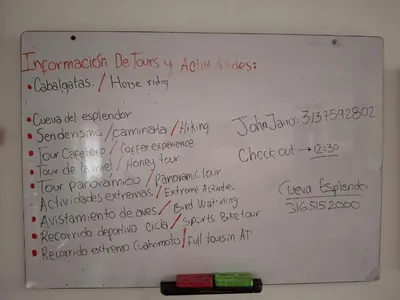 Información De Tours y Actividades:
• Cabalgatas / Horse riding
• Cueva del esplendor
• Senderismo / caminata / Hiking
• Tour Cafetero / Coffee experience
• Tour de la miel / Honey tour
• Tour panorámico / Panoramic tour
• Actividades extremas / Extreme Activities
• Avistamiento de aves / Bird Watching
• Recorrido deportivo Cicla / Sports Bike tour
• Recorrido extremo Cuatrimoto / full tours in
John Jairo: 3137592802
Check out → 12:30
Cueva Esplendor
3165152000